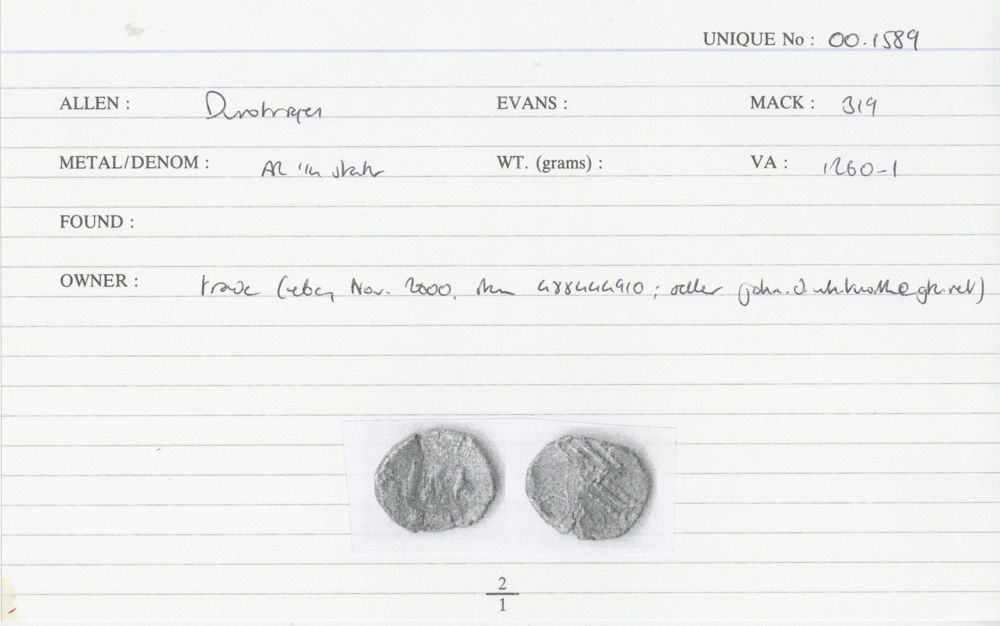 UNIQUE No : 00.1589
ALLEN : Durotriges EVANS : MACK : 319
METAL/DENOM : AR 1/4 stater WT. (grams) : VA : 1260-1
FOUND :
OWNER : trade (ebay Nov. 2000, item 488444910 ; seller
2
1